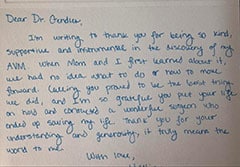 Dear Dr. Gendler,
I'm writing to thank you for being so kind,
supportive and instrumental in the discovery of my
AVM. When Mom and I first learned about it,
we had no idea what to do or how to move
forward. Calling you proved to be the best thing
we did, and I'm so grateful you put your life
on help and connected a wonderful surgeon who
ended up saving my life. Thank you for your
understanding and generosity, it truly means the
world to me.
With love,